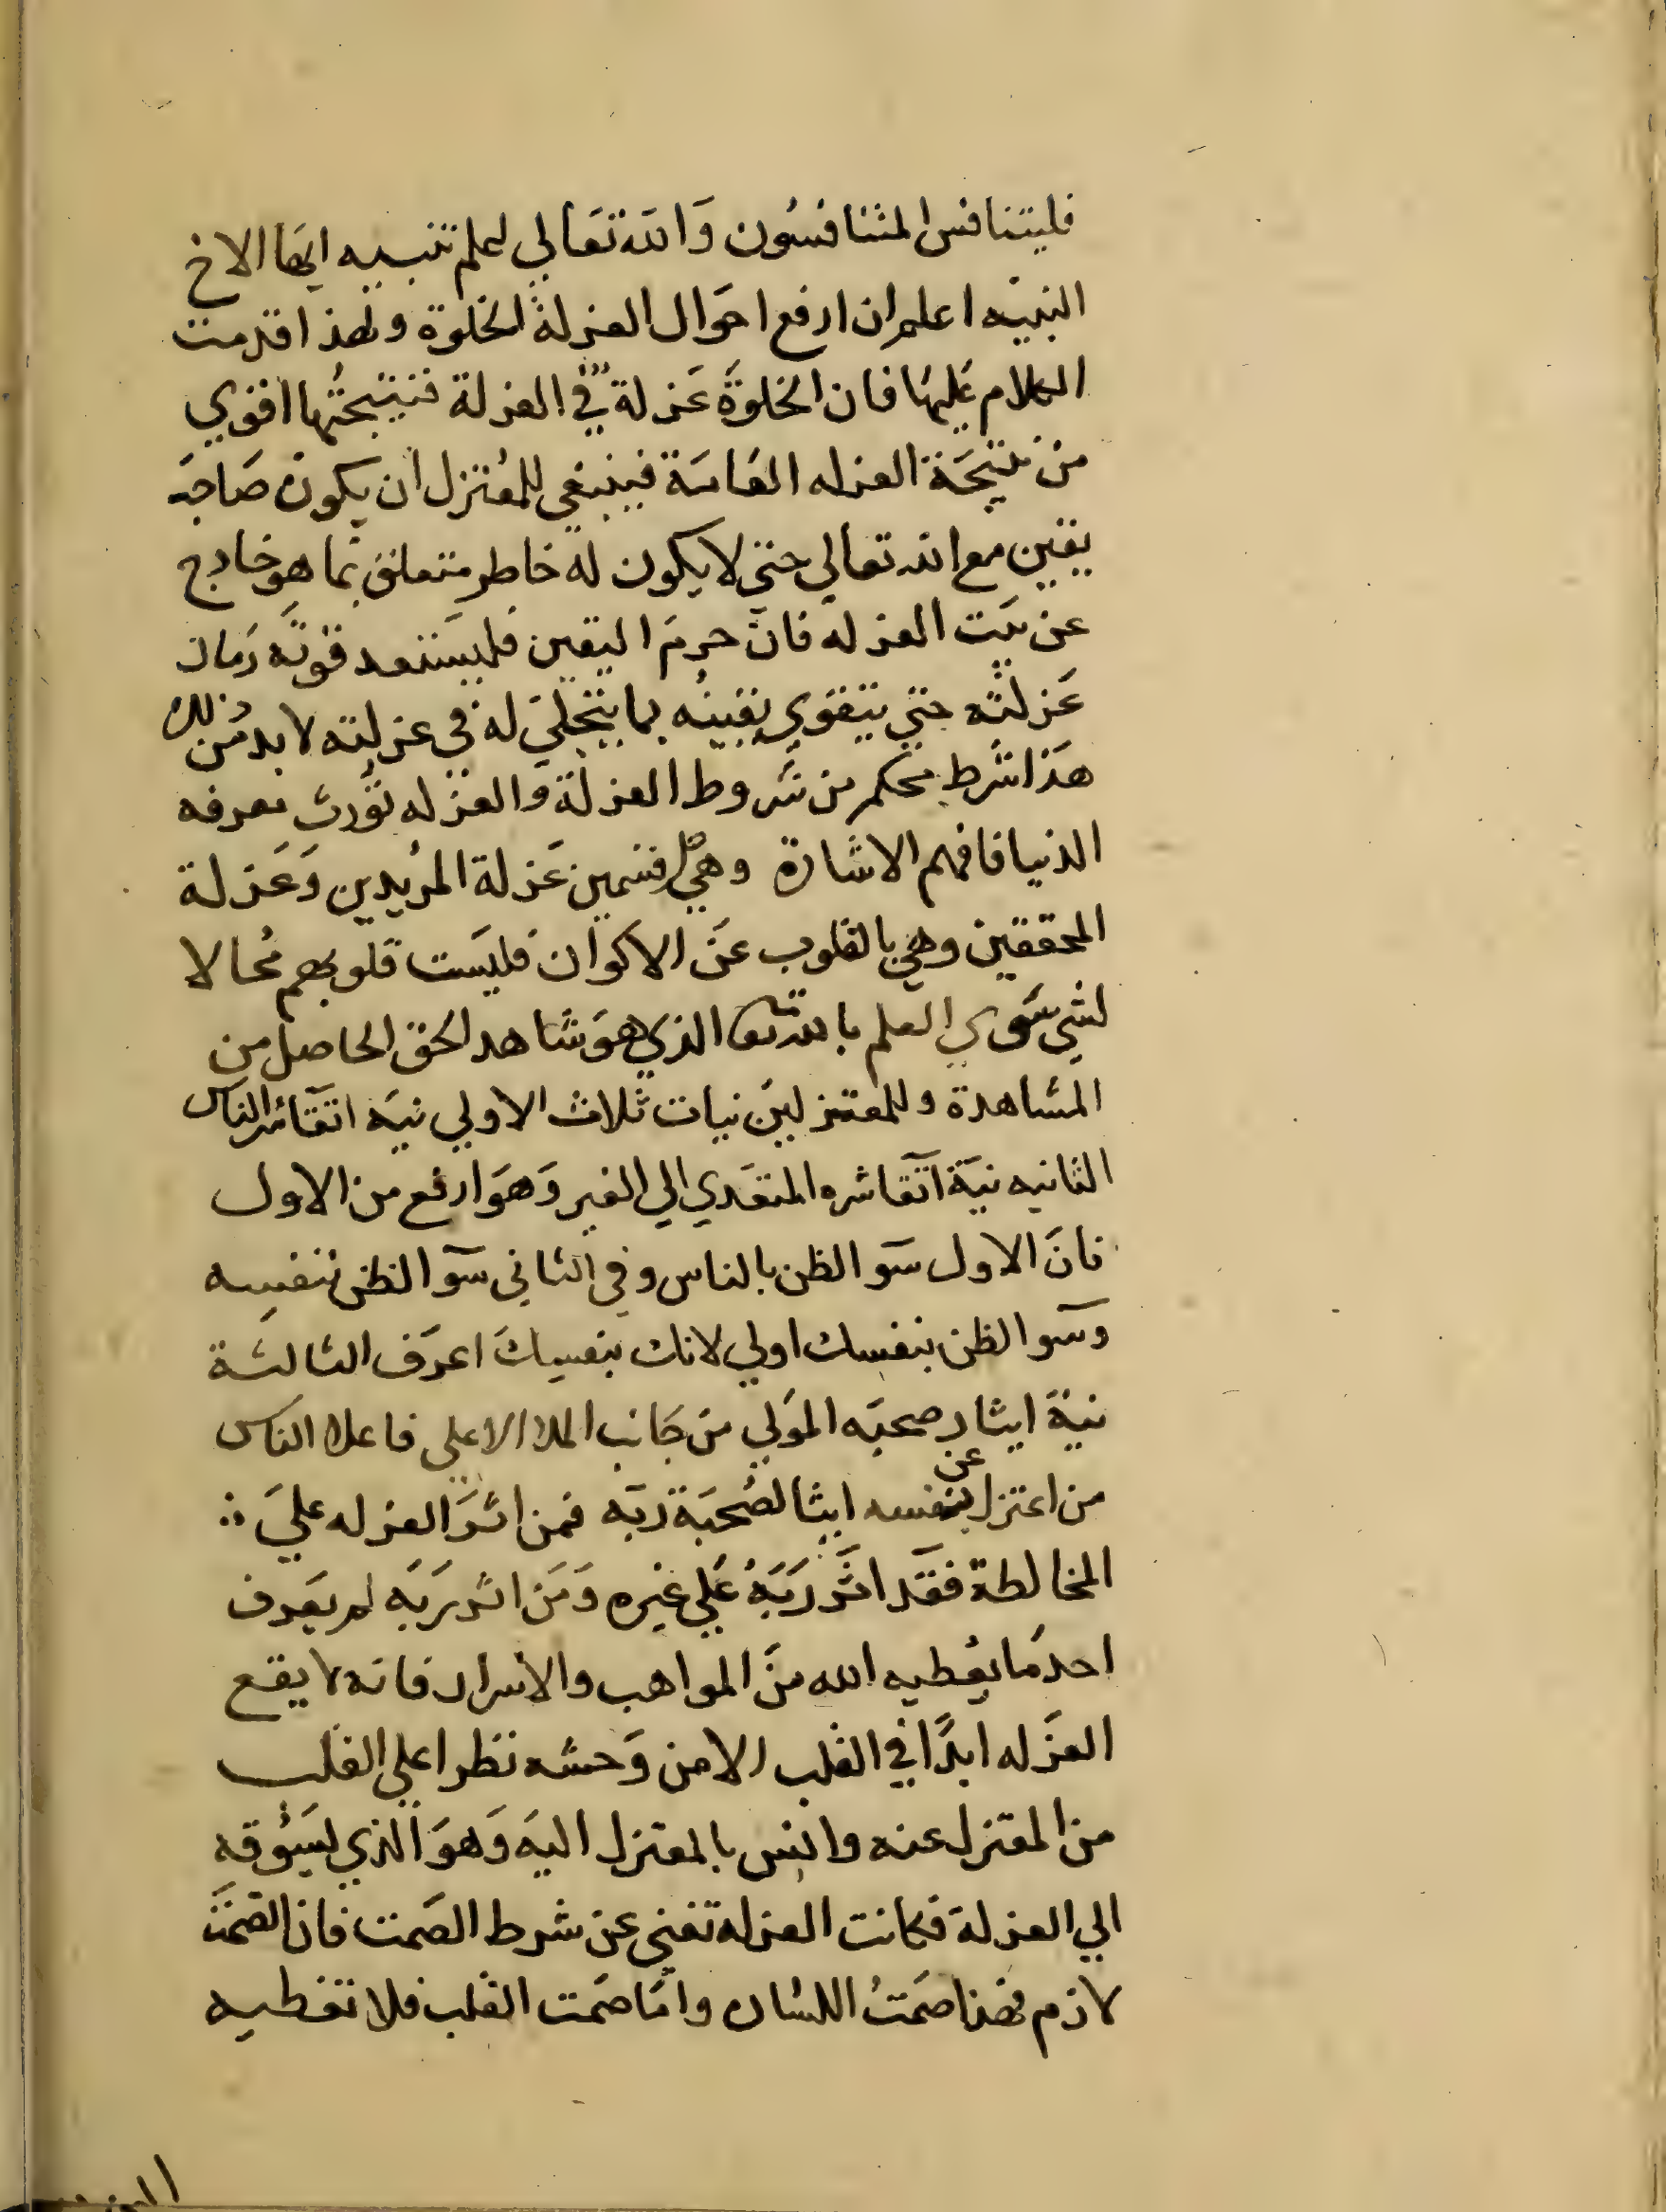 فليتنافس المتنافسون وَالله تعَالي اعلم تنبيه ايها الاخ
النبيه اعلم ان ارفع احوَال العزلة الخلوة ولهذا قدمت
الكلام عليهَا فان الخلوَة عَزلة في العزلة فنتيجتُها اقوي
من نتيجَة العزله العَامة فينبغي للمُعتزل ان يكون صَاحبَ
يقين مع الله تعالي حتي لا يكون له خاطر متعلق بما هو خارج
عن بَيت العزله فان حرمَ اليقين فليستعد قوته زمان
عَزلته حتي يتقوي يقينُه بما يتجلي له في عزلته لا بد من ذلك
هَذا شَرط محكم من شروط العزلة وَالعزله تورث معرفه
الدنيا فافهم الاشارة وهي قسمين عَزلة المريدين وَعَزلة
المحققين وهي بالقلوب عَن الاكوان فليسَت قلوبهم مُحالا
لشي سَوي العلم بالله تعا الذي هوَ شَاهد الحق الحاصل من
المشاهدة وللمعتزلين نيات ثلاث الاولي نيَة اتقا شر الناس
الثانيه نيَة اتقا شره المتعَدي الي الغير وَهوَ ارفع من الاول
فانَ الاول سَو الظن بالناس وفي الثاني سَو الظن بنفسِه
وسَو الظن بنفسك اولي لانك بنفسِكَ اعرَف الثالثة
نيَة ايثار صحبَه الموَلي من جَانب الملا الاعلي فاعلا الناس
من اعتزل عن نفسه ايثا لصُحبَة ربَه فمن اثرَ العزله عليَ
المخالطة فقَد اثَر رَبَهُ عَلي غيره وَمَن اثر رَبَه لم يعَرف
احد مَا يعُطيه الله منَ المواهب والاسرار فانه لا يقع
العزَله ابدًا في القلب الا من وَحشه تطرا علي القلب
من المعتزل عنه وانس بالمعتزل اليَه وَهوَ الذي يسَوقه
الي العزلة فكانت العزله تغني عن شرط الصَمت فان الصَمت
لازم فهذا صَمتُ اللسَان وامَا صَمت القلب فلا تعطيه